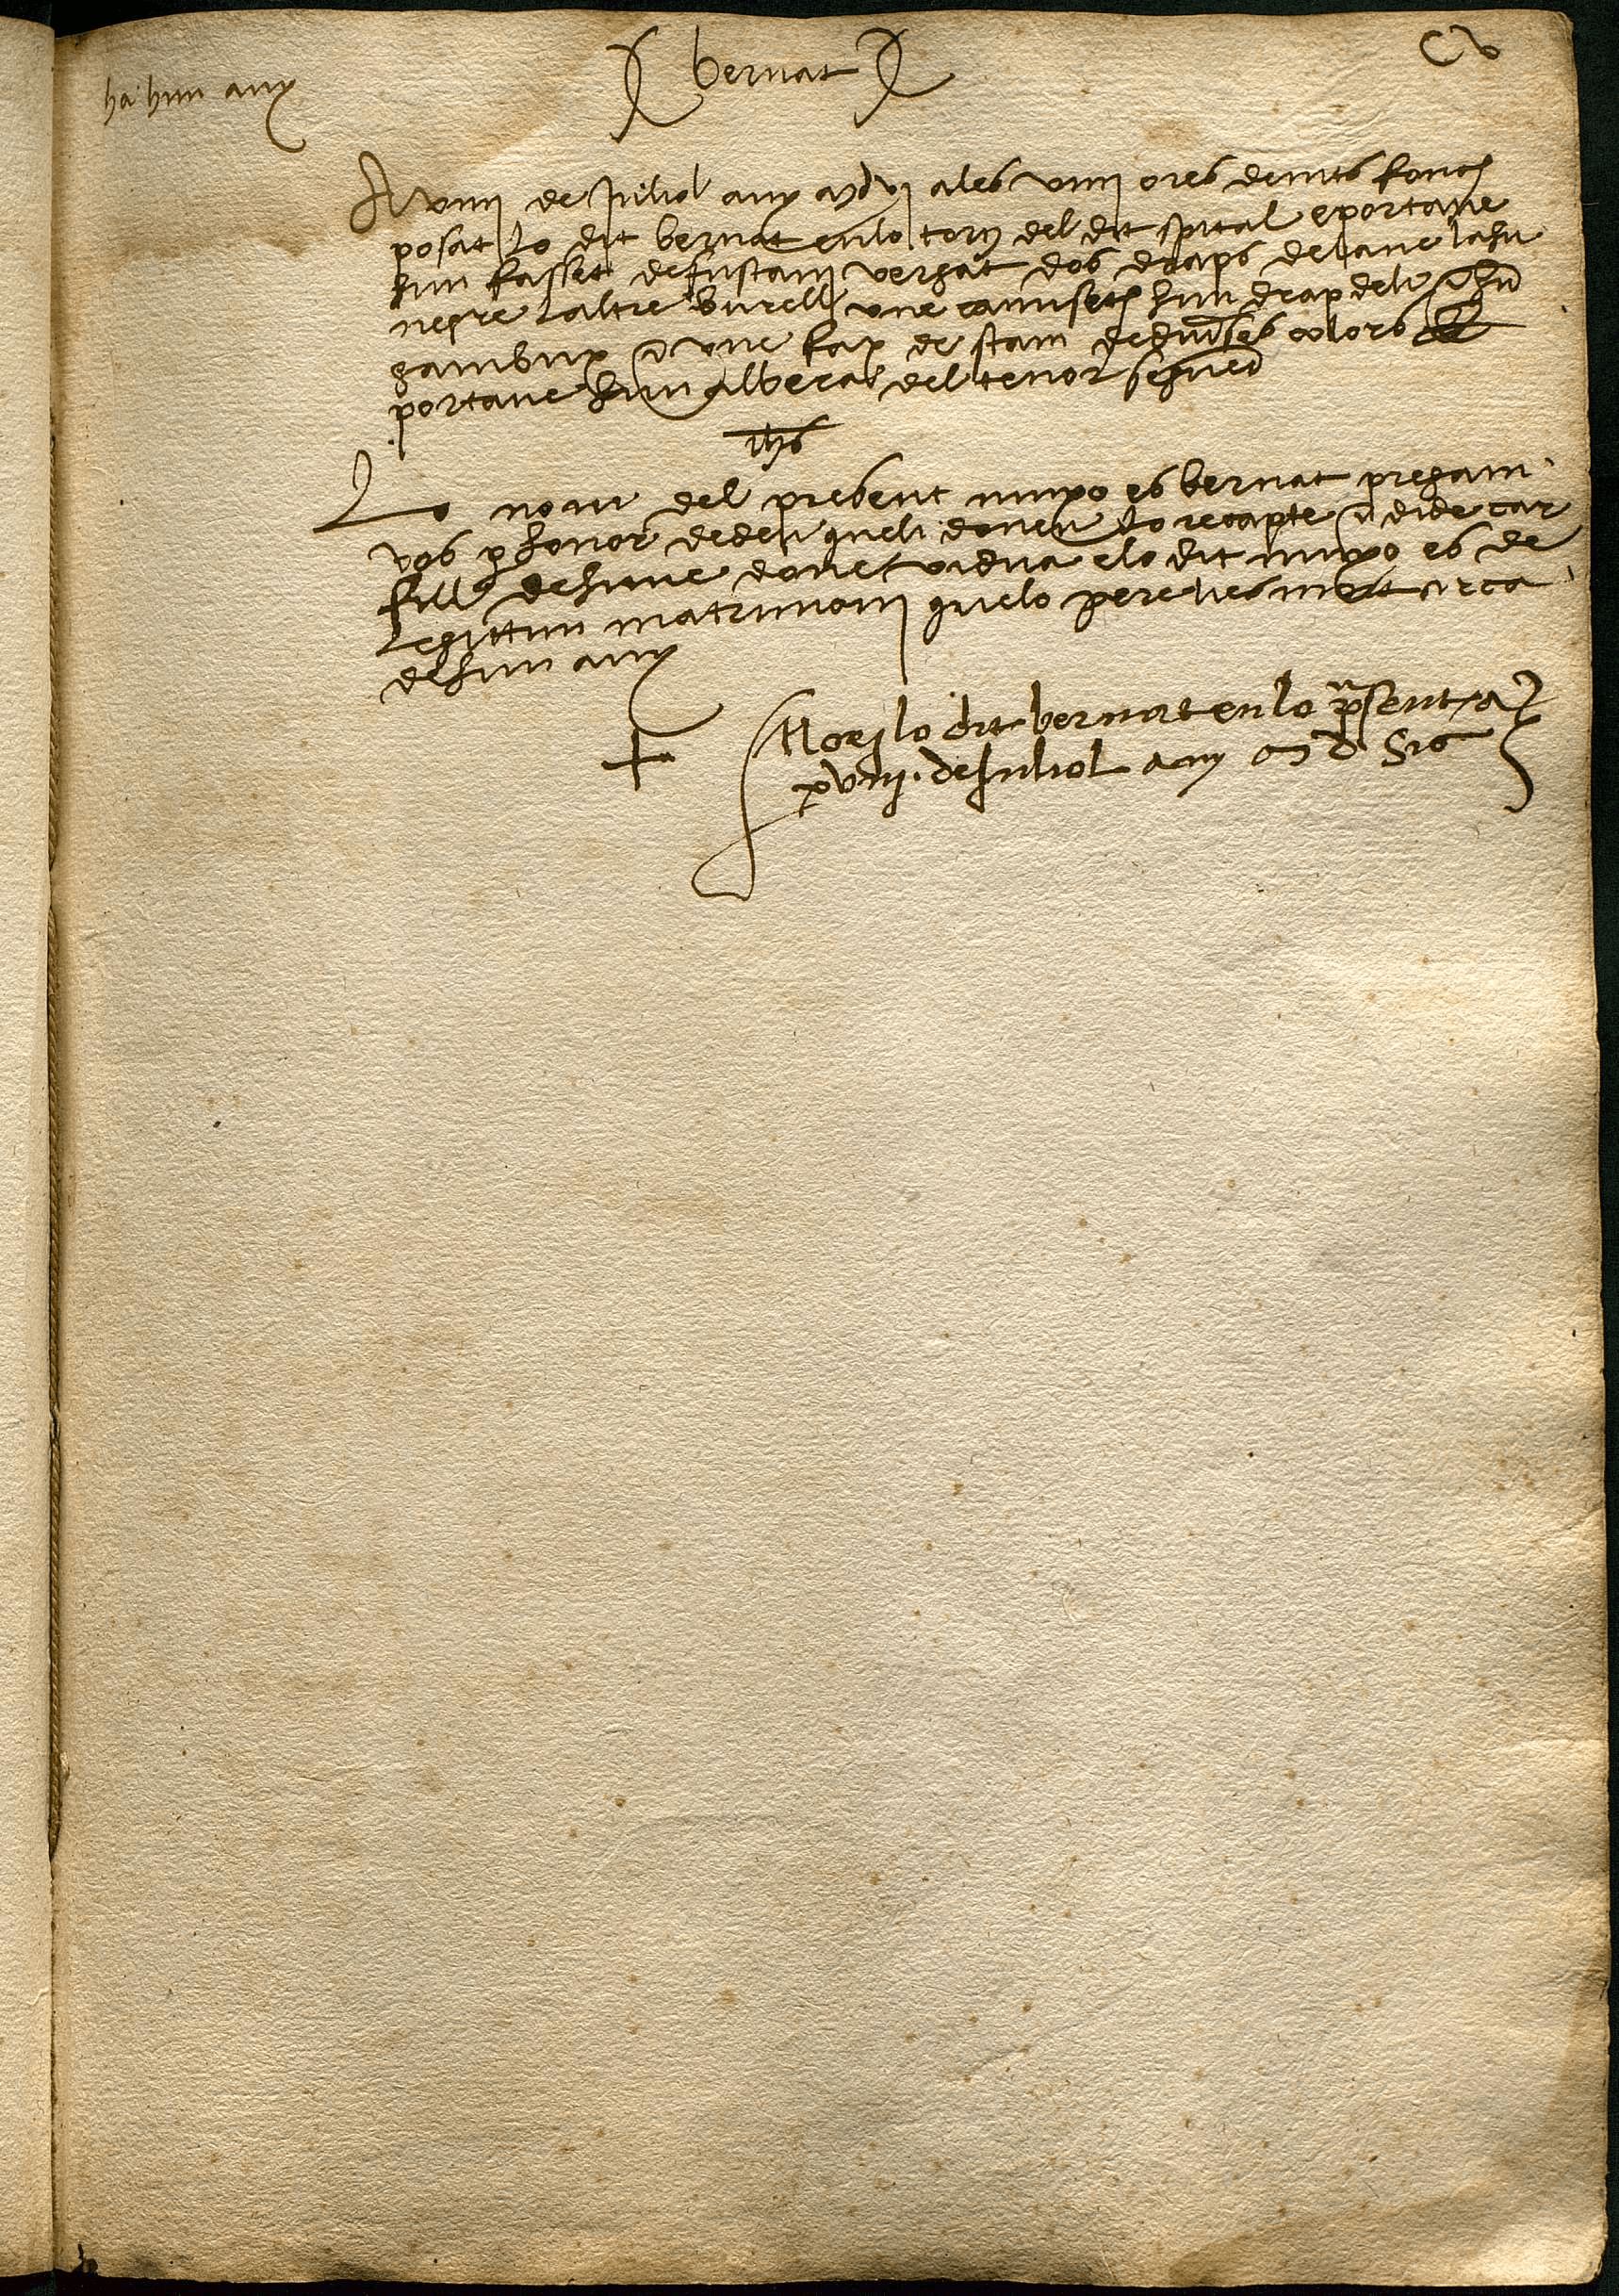 ha hun any
bernat
CV
A viiij de Juliol any mdvj ales viiij ores de nits fonch
posat lo dit bernat en lo torn del dit spital e portave
hun kasset de fustani vergat dos draps de lane la hu
negre laltre burell une camiseta hun drap de li e hu
gambux e une fax de stam de diverses colors e
portave hun albera del tenor seguent
ihs
Lo nom del present minyo es bernat pregam
vos per honor de deu que li doneu bo recapte e dide car
fill es de hune done vidua e lo dit minyo es de
legittim matrimoni que lo pere es mort circa
de hun any
+ Mori lo dit bernat en lo present a
xviij. de Juliol any M D Sis